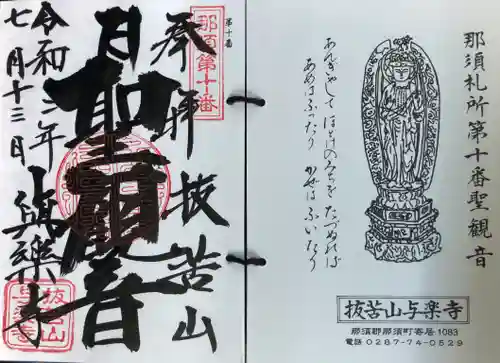 那須札所第十番聖観音
あんぎやして ほとけのみちを たづぬれば
あめはふつたり かぜはふいたり
抜苦山与楽寺
那須郡那須町寄居1083
電話0287-74-0529
第十番
那須第十番
奉拝 抜苦山
聖観音
與樂寺
令和二年
七月十三日
抜苦山
与楽寺